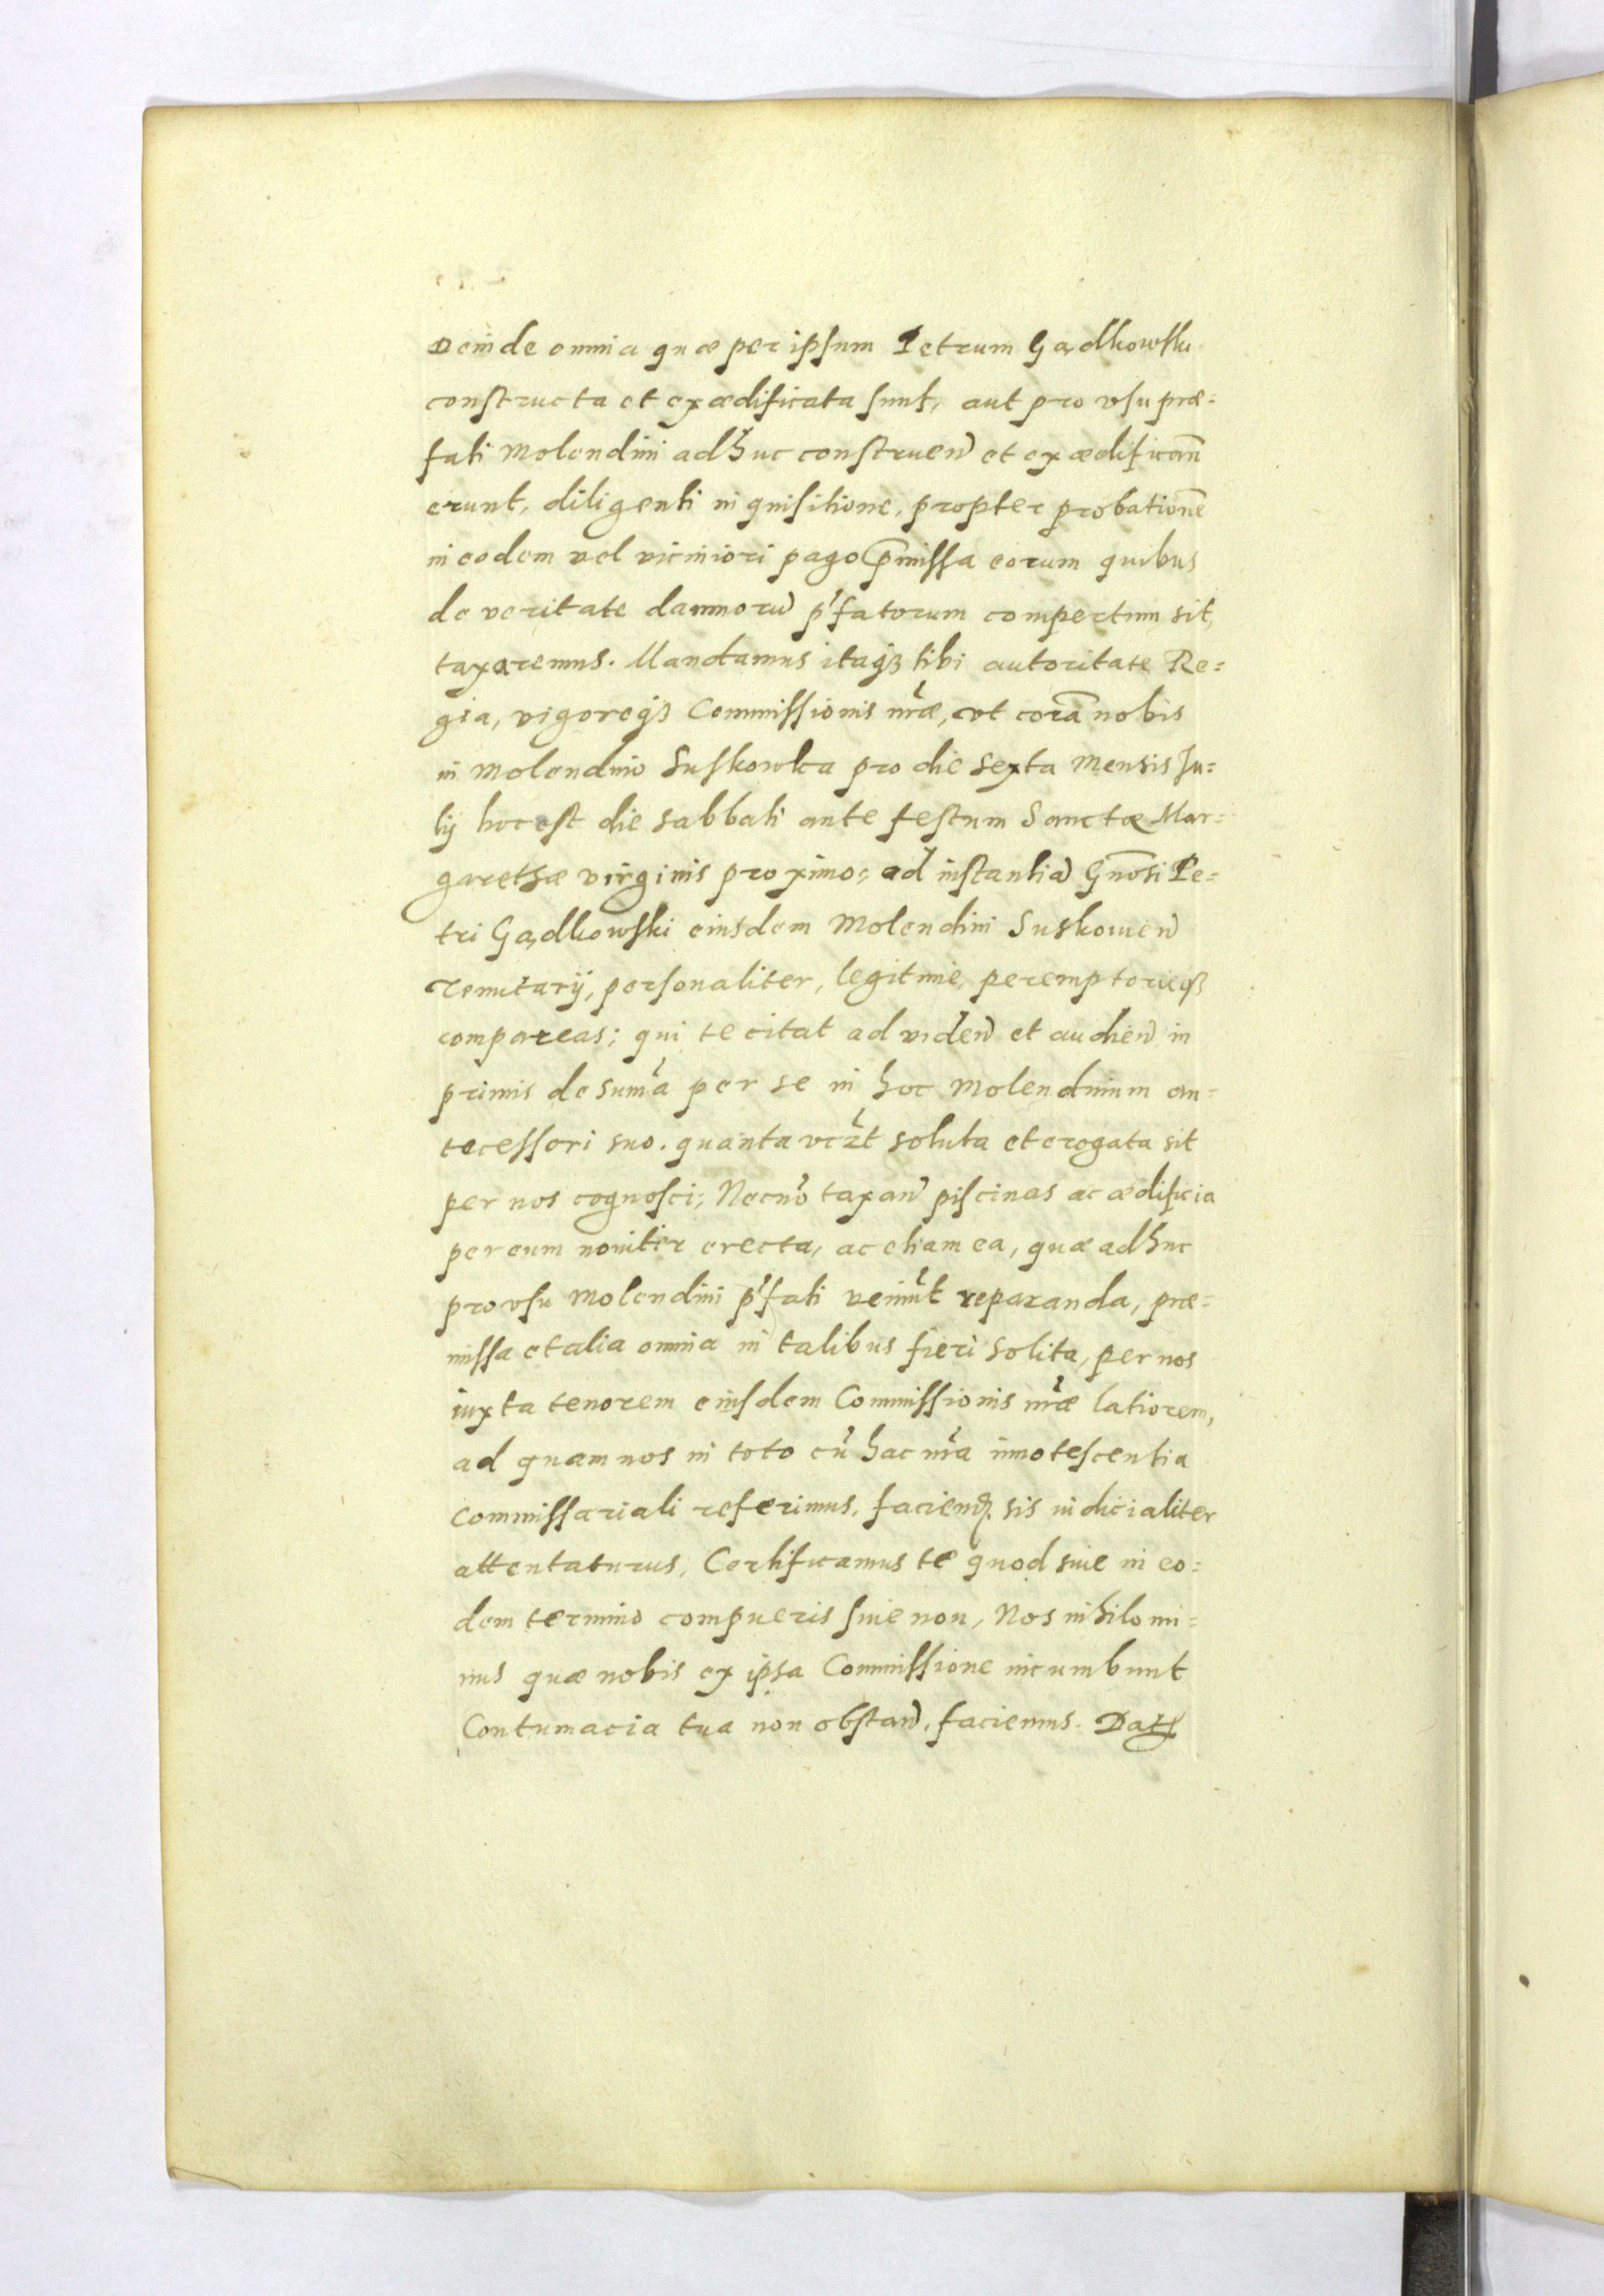 Deinde omnia quæ per ipsum Petrum Gądkowski
constructa et exædificata sunt, aut pro vsu præ=
fati Molendini adhuc construen̄ et exædifican̄
erunt, diligenti inquisitione, propter probationē
in eodem vel viciniori pago p̄missa eorum quibus
de veritate damnorū p̓fatorum compertum sit,
taxaremus. Mandamus itaqꝫ tibi autoritate Re=
gia, vigoreqꝫ Commissionis nr̄æ, vt corā nobis
in Molendino Suskowka pro die sexta Mensis Ju=
lij hoc est die sabbati ante festum Sanctæ Mar=
garethæ virginis proximo; ad instantiā Gn̄osi Pe=
tri Gądkowski eiusdem Molendini Suskowien̄
Tenutarij, personaliter, legitime, peremptorieqꝫ
compareas; qui te citat ad viden̄ et audien̄ in
primis de sum̄a per se in hoc Molendinum an=
tecessori suo. quanta vrz̄t soluta et erogata sit
per nos cognosci; Necnō taxan̄ piscinas ac ædificia
per eum nouiter erecta, ac etiam ea, quæ adhuc
pro vsu Molendini p̓fati veniūt reparanda, præ=
missa et alia omnia in talibus fieri solita, per nos
iuxta tenorem eiusdem Commissionis nr̄æ latiorem,
ad quam nos in toto cū hac nr̄a innotescentia
Commissariali referimus, faciend. sis iudicialiter
attentaturus, Certificamus te quod siue in eo=
dem termino compueris siue non, Nos nihilomi=
nus quæ nobis ex ipsa Commissione incumbunt
Contumacia tua non obstan̄, faciemus. Datꝫ